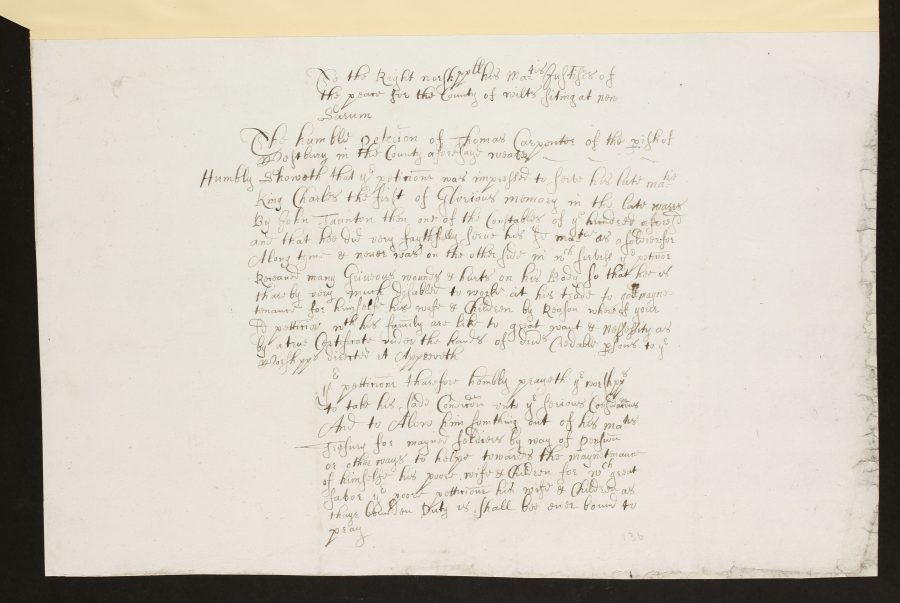 To the Right worshppll his Matis Justises of
the peace for the County of wilts siting at new
Sarum
The humble petecion of Thomas Carpenter of the pish of
Westbury in the County aforesayd weaver
Humbly Showeth that yr peticionr was impressed to serve his late matie
King Charles the first of Glorious memory in the late warrs
By John Taunton then one of the Constables of ye hundred aforesd
and that hee did very faythfully serve his sd matie as a souldier for
A long tyme & never was on the other side in wch servise yr peticior
Receaved many Griveous wounds & hurts on his Body so that hee is
thareby very much disabled to worke at his trade to gett mayne
tenance for himselfe his wife & Children by Reason whereof your
sd peticior wth his family are like to great want & nessesity as
by a true Certificate under the hands of divers Credable psons to yr
Worshpps directed it Appeereth
Yr petitionr tharefore hombly prayeth yr worshpps
to take his sade Condicon into yr serious Consideracons
And to Alow him somthing out of his matis
Tresury for mayned soldiers by way of pension
or other ways to helpe towards the mayntenance
of himselfe his poore wife & Children for wch great
favor yr poore petitionr his wife & Children as
thayr bounden Duty is shall bee ever bound to
pray
136